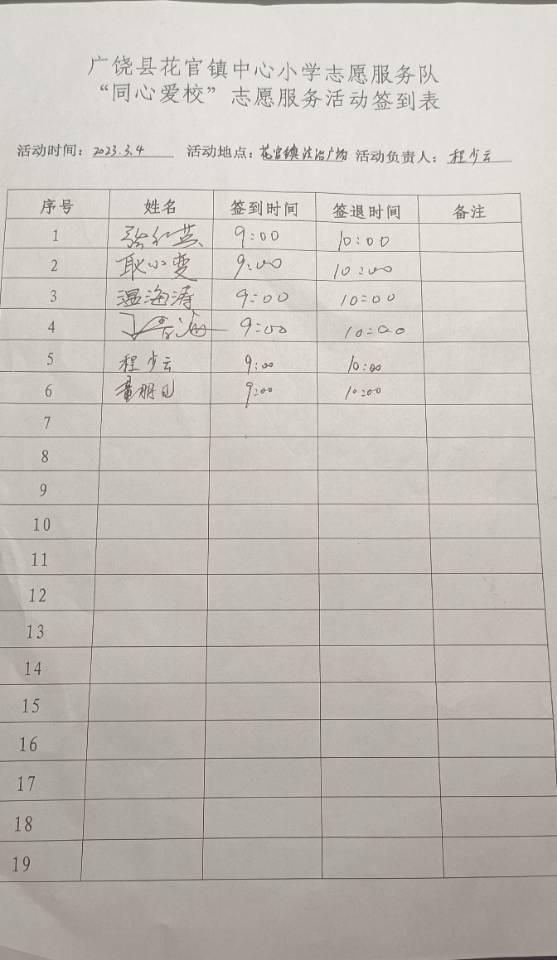 广饶县花官镇中心小学志愿服务队
“同心爱校”志愿服务活动签到表
活动时间：2023.3.4 活动地点：花官镇法治广场 活动负责人：程少云
序号 姓名 签到时间 签退时间 备注
1 张红英 9:00 10:00
2 耿小变 9:00 10:00
3 温海涛 9:00 10:00
4 9:00 10:00
5 程少云 9:00 10:00
6 董明 9:00 10:00
7
8
9
10
11
12
13
14
15
16
17
18
19